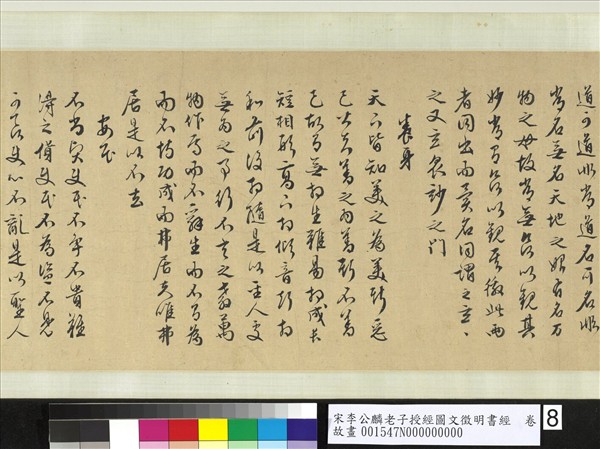 道可道非常道名可名非
常名無名天地之始有名万
物之母故常無欲以觀其
妙常有欲以觀其徼此兩
者同出而異名同謂之玄〻
之又玄衆妙之門
養身
天下皆知美之為美斯惡
已皆知善之為善斯不善
已故有無相生難易相成長
短相形高下相傾音聲相
和前後相隨是以聖人處
無為之事行不言之教萬
物作焉而不辭生而不有為
而不恃功成而弗居夫唯弗
居是以不去
安民
不尚賢使民不爭不貴難
得之貨使民不為盜不見
可欲使心不亂是以聖人
宋李公麟老子授經圖文徵明書經 卷 8
故畫 001547N000000000